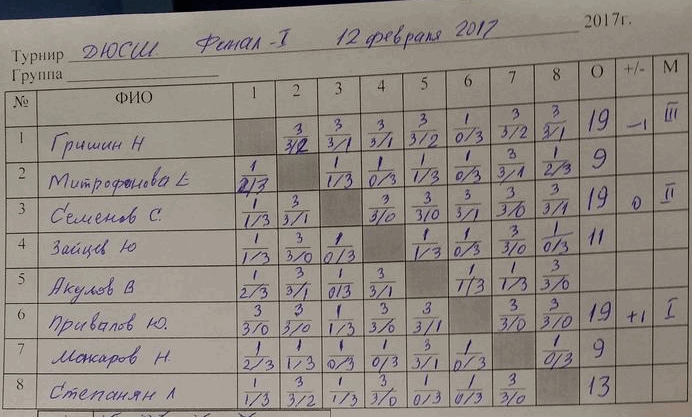 2017г.
Турнир ДЮСШ Финал-I 12 февраля 2017
Группа
№ ФИО 1 2 3 4 5 6 7 8 О +/- М
1 Гришин Н 3 3/2 3 3/1 3 3/1 3 3/2 1 0/3 3 3/2 3 3/1 19 -1 III
2 Митрофанова Е 1 2/3 1 1/3 1 0/3 1 1/3 1 0/3 3 3/1 1 2/3 9
3 Семенов С. 1 1/3 3 3/1 3 3/0 3 3/0 3 3/1 3 3/0 3 3/1 19 0 II
4 Зайцев Ю 1 1/3 3 3/0 1 0/3 1 1/3 1 0/3 3 3/0 1 0/3 11
5 Акулов В 1 2/3 3 3/1 1 0/3 3 3/1 1 1/3 1 1/3 3 3/0
6 Привалов Ю. 3 3/0 3 3/0 1 1/3 3 3/0 3 3/1 3 3/0 3 3/0 19 +1 I
7 Макаров Н. 1 2/3 1 1/3 1 0/3 1 0/3 3 3/1 1 0/3 1 0/3 9
8 Степанян Л 1 1/3 3 3/2 1 1/3 3 3/0 1 0/3 1 0/3 3 3/0 13